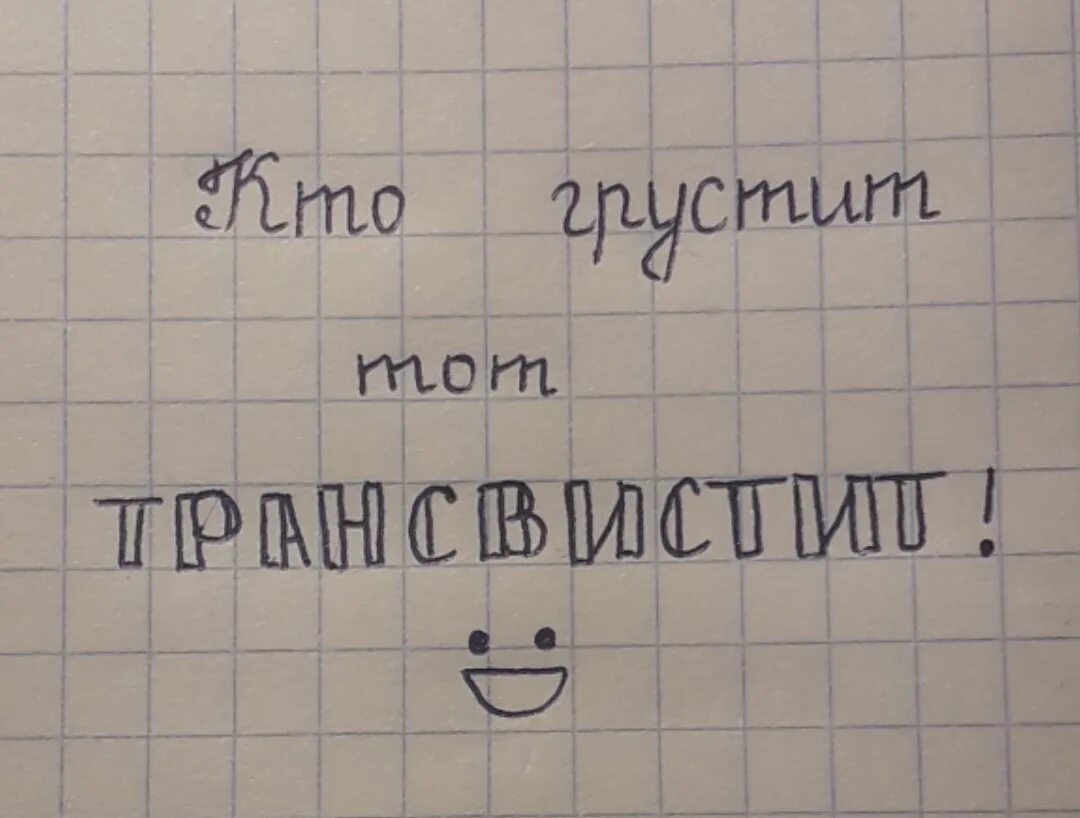 Кто грустит
тот
ТРАНСВИСТИТ!